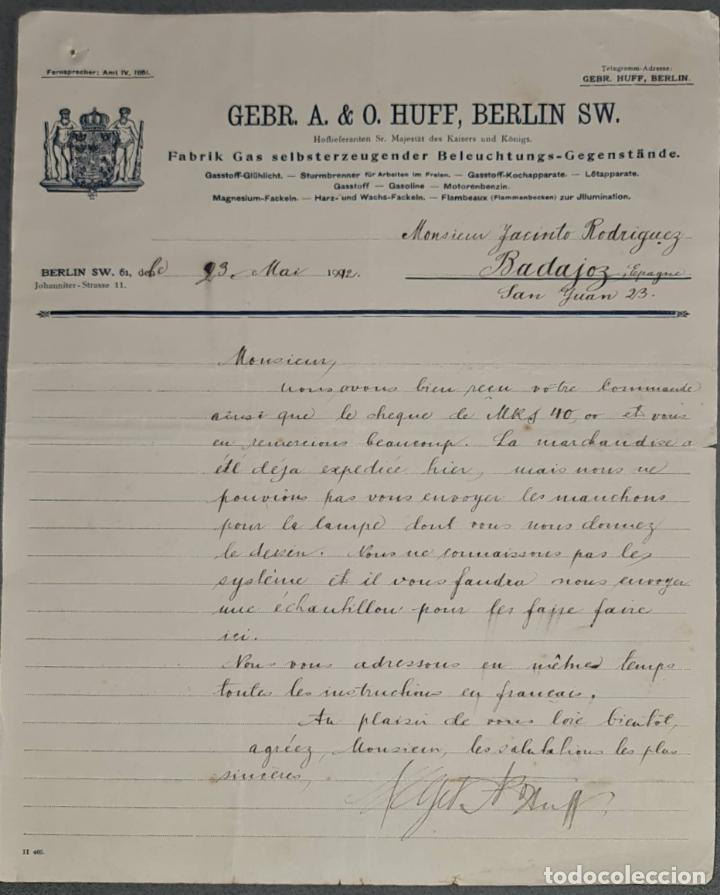 Fernsprecher: Amt IV, 1661.
Telegramm-Adresse:
GEBR. HUFF, BERLIN.
GEBR. A. & O. HUFF, BERLIN SW.
Hoflieferanten Sr. Majestät des Kaisers und Königs.
Fabrik Gas selbsterzeugender Beleuchtungs-Gegenstände.
Gasstoff-Glühlicht. — Sturmbrenner für Arbeiten im Freien. — Gasstoff-Kochapparate. — Lötapparate.
Gasstoff — Gasoline — Motorenbenzin.
Magnesium-Fackeln. — Harz- und Wachs-Fackeln. — Flambeaux (Flammenbecken) zur Jllumination.
Monsieur Jacinto Rodriguez
Badajoz, Epagne
San Juan 23.
BERLIN SW. 61, 23. Mai
Johanniter-Strasse 11.
Monsieur,
nous avons bien reçu votre commande
ainsi que le cheque de MKS 40,00 et vous
en remercions beaucoup. La marchandise a
été déja expediée hier, mais nous ne
pouvions pas vous envoyer les manchons
pour la lampe dont vous nous donnez
le dessin. Nous ne connaissons pas les
système et il vous faudra nous envoyer
une échantillon pour les faire faire
ici.
Nous vous adressons en mêmes temps
toutes les instructions en français.
Au plaisir de vous bientôt,
agréez, Monsieur, les salutations les plus
sincères,
Huff
II 405.
todocoleccion
todocoleccion.net